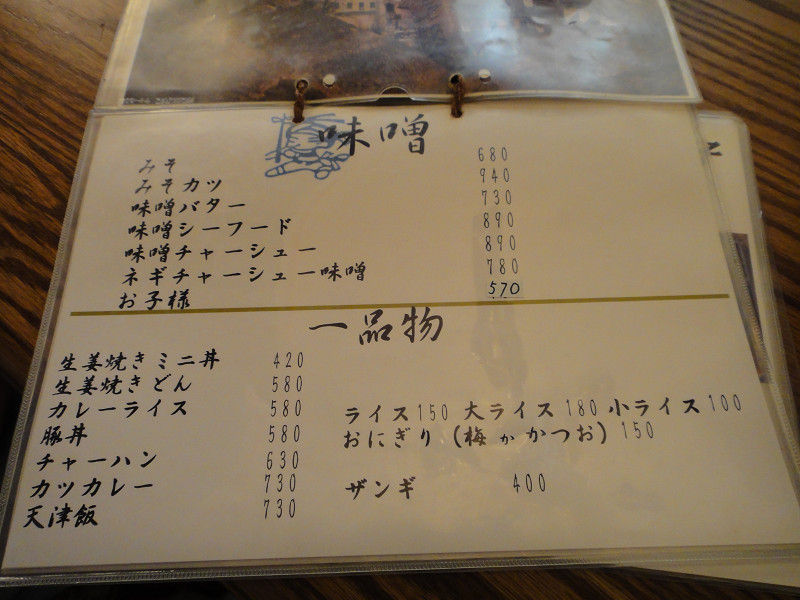 味噌
みそ 680
みそカツ 940
味噌バター 730
味噌シーフード 890
味噌チャーシュー 890
ネギチャーシュー味噌 780
お子様 570
一品物
生姜焼きミニ丼 420
生姜焼きどん 580
カレーライス 580
豚丼 580
チャーハン 630
カツカレー 730
天津飯 730
ライス150 大ライス180 小ライス100
おにぎり（梅かかつお）150
ザンギ 400